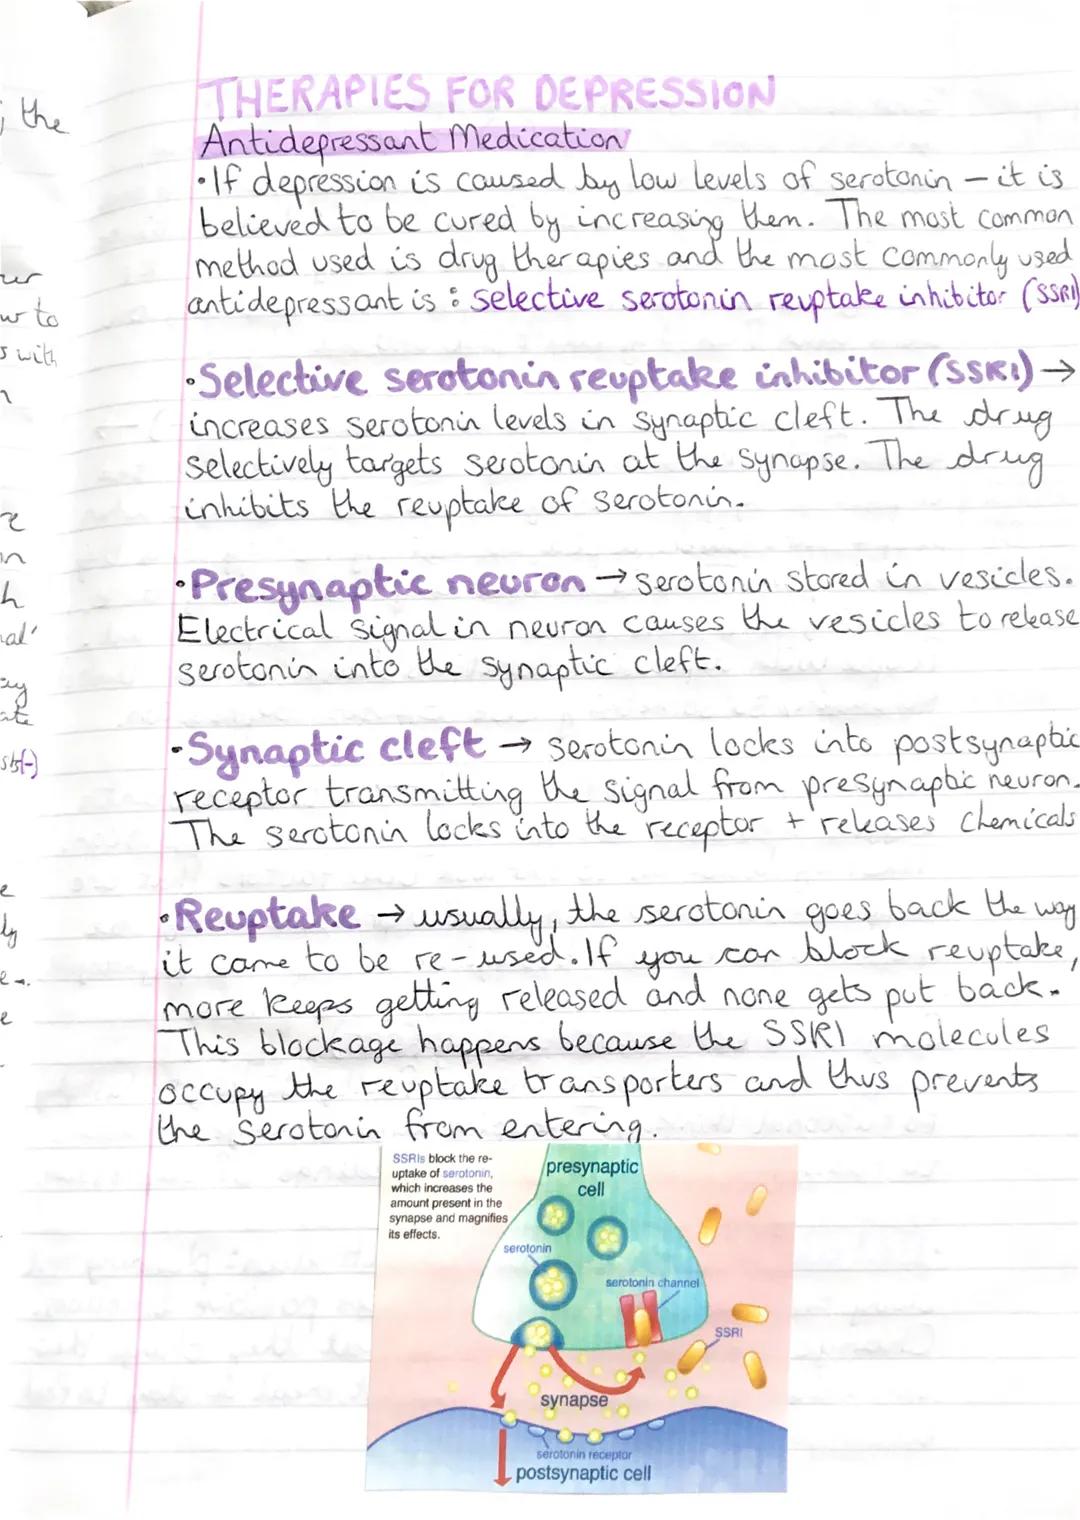 ; the
THERAPIES FOR DEPRESSION
Antidepressant Medication
•If depression is caused by low levels of serotonin – it is
believed to be cured by increasing them. The most common
method used is drug therapies and the most commonly used
antidepressant is : selective serotonin reuptake inhibitor (SSRI)
w to
s with
•Selective serotonin reuptake inhibitor (SSRI) →
increases serotonin levels in synaptic cleft. The drug
selectively targets serotonin at the synapse. The drug
inhibits the reuptake of serotonin.
•Presynaptic neuron → serotonin stored in vesicles.
Electrical signal in neuron causes the vesicles to release
serotonin into the synaptic cleft.
•Synaptic cleft → serotonin locks into postsynaptic
receptor transmitting the signal from presynaptic neuron.
The serotonin locks into the receptor + releases chemicals
•Reuptake → usually, the serotonin goes back the way
it came to be re-used. If you can block reuptake,
more keeps getting released and none gets put back.
This blockage happens because the SSRI molecules
occupy the reuptake transporters and thus prevents
the serotonin from entering.
SSRIs block the re-
uptake of serotonin,
which increases the
amount present in the
synapse and magnifies
its effects.
presynaptic
cell
serotonin
serotonin channel
SSRI
synapse
serotonin receptor
postsynaptic cell